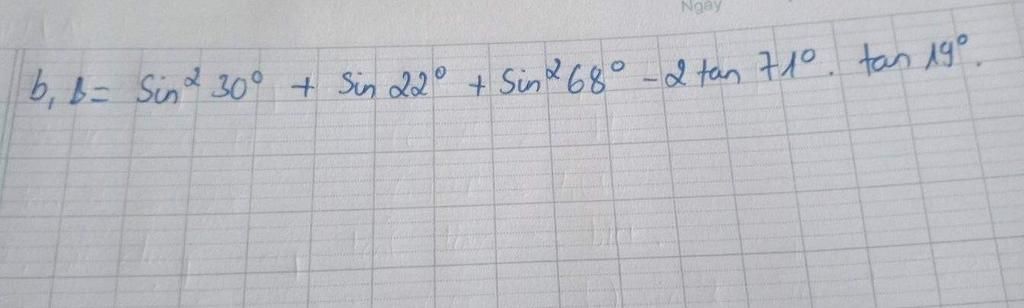 Ngày
b, B = Sin² 30° + Sin 22° + Sin² 68° - 2 tan 71° . tan 19° .